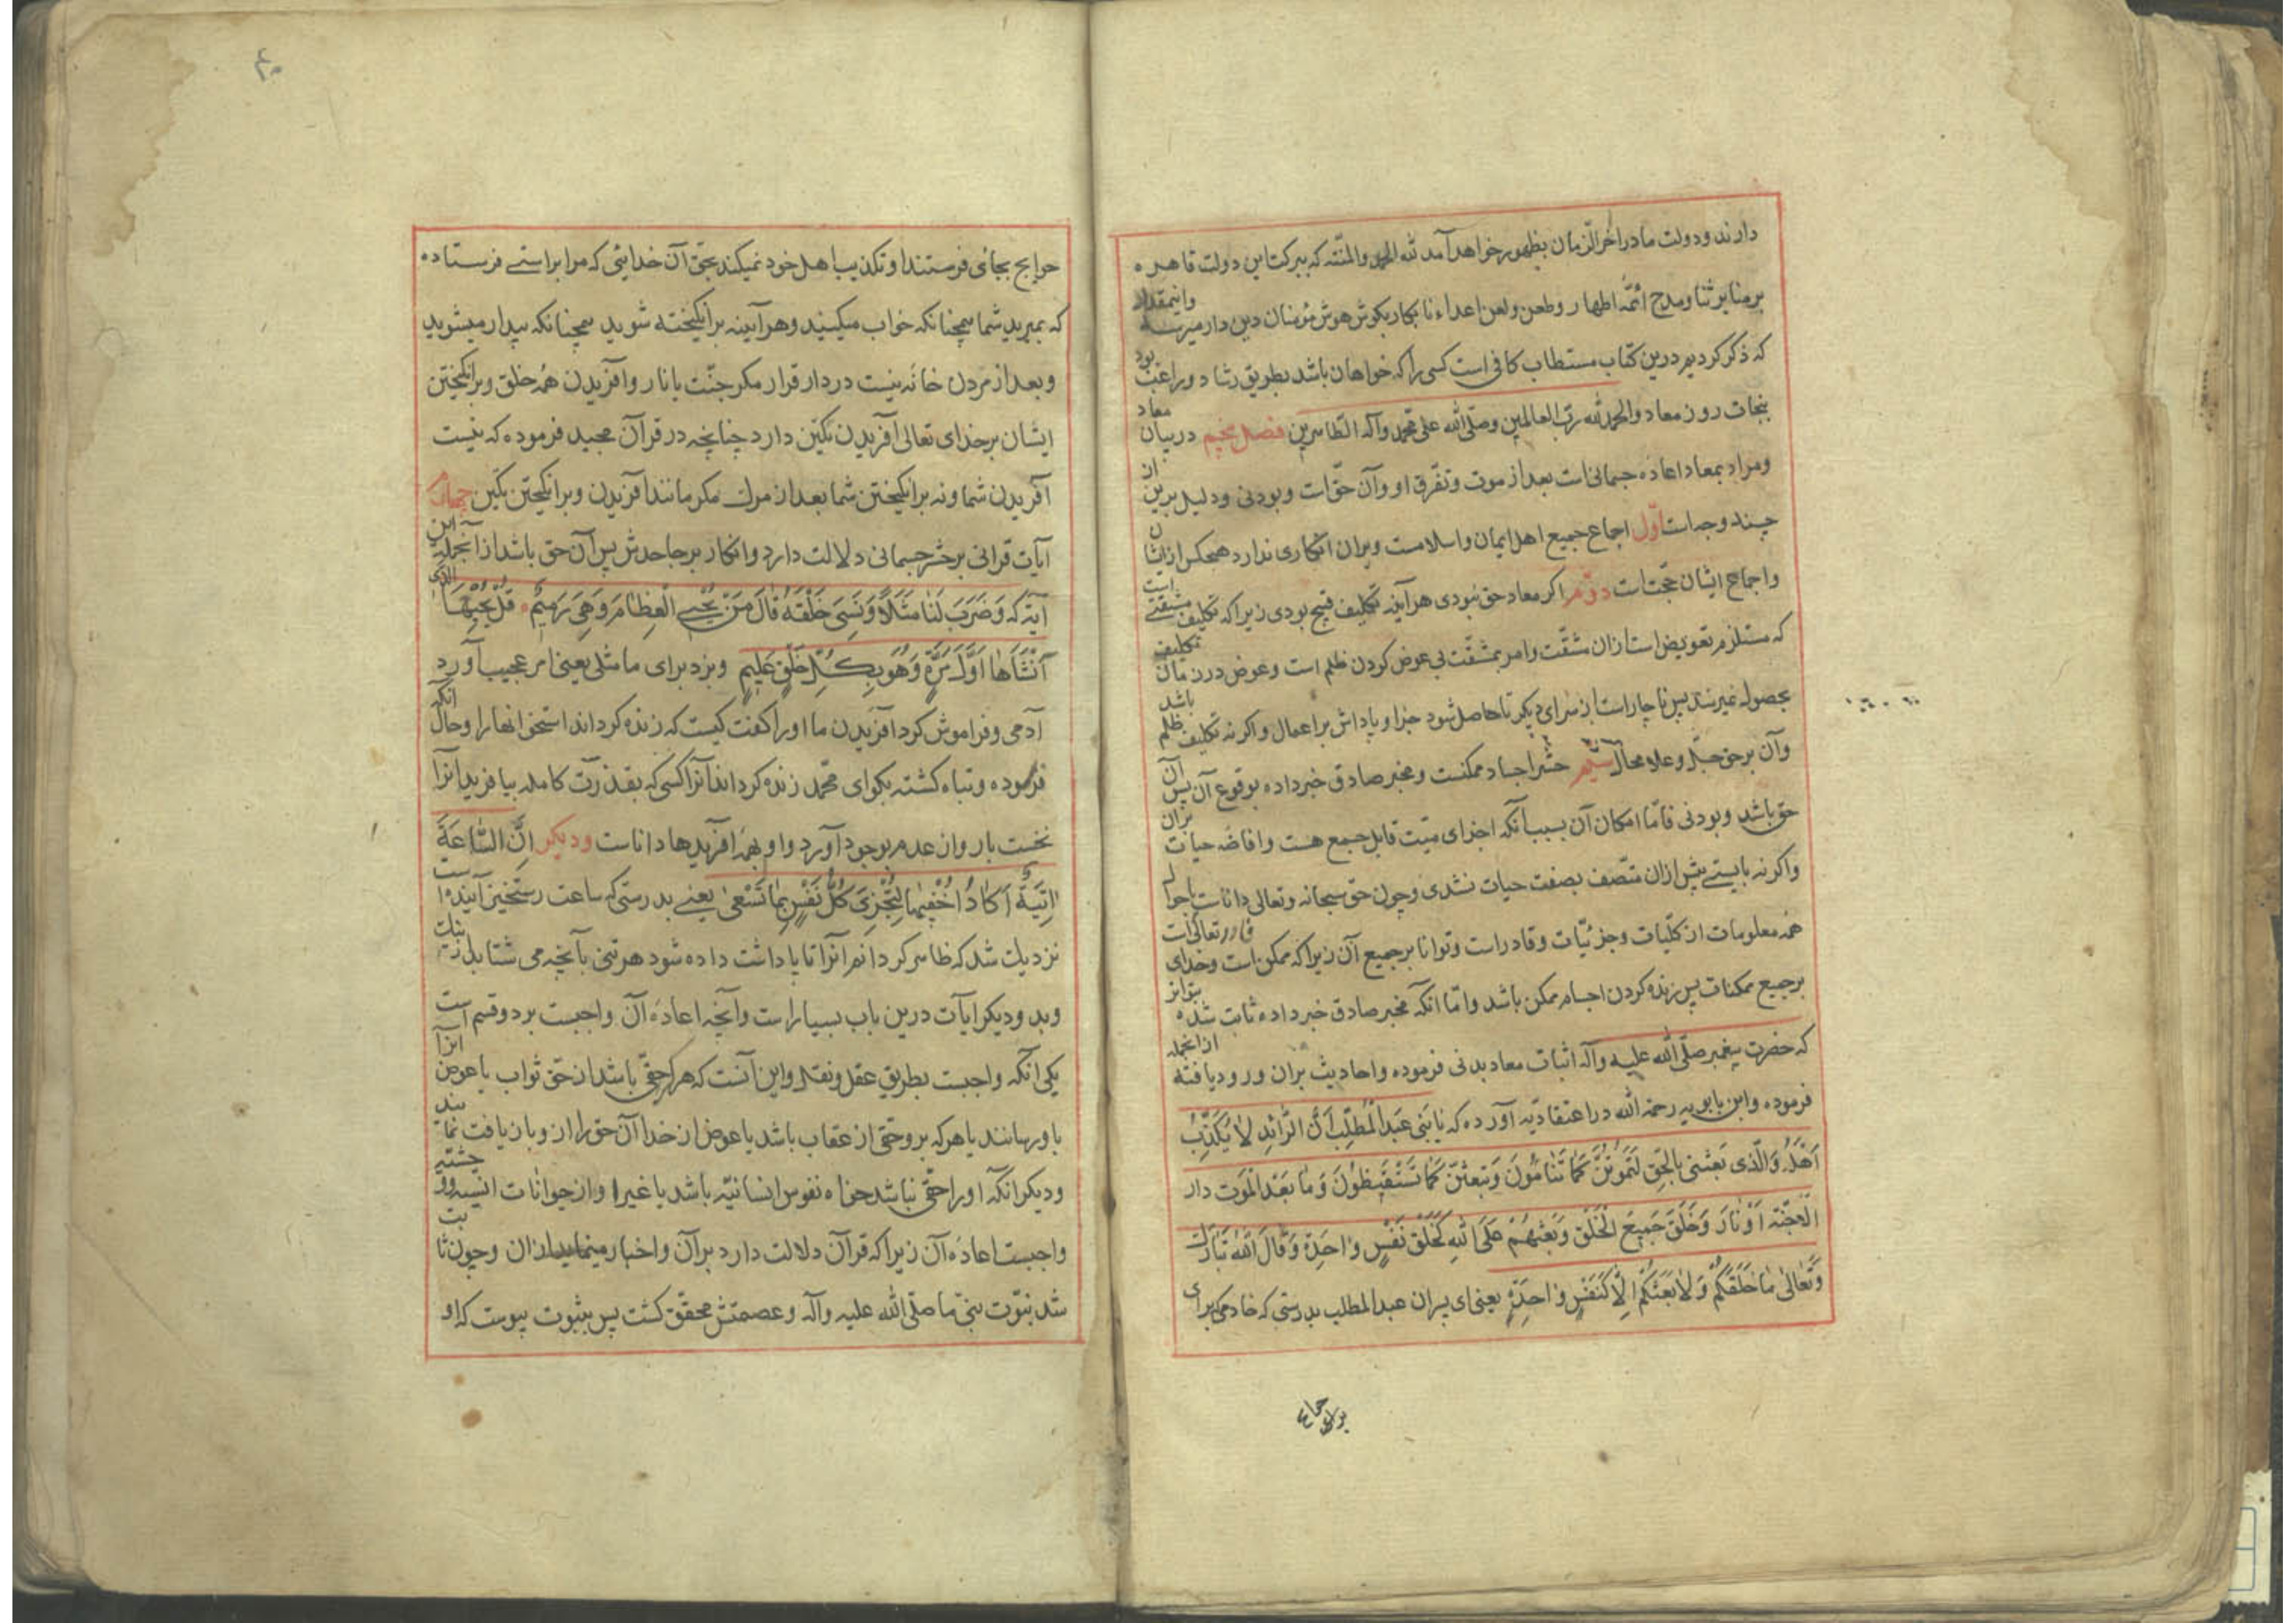 دارند و دولت ما در اخر الزمان بظهور خواهد آمد لله الحمد والمنّته که ببرکت این دولت قاهره
بر منابر ثنا و مدح ائمّه اطهار و طعن و لعن اعداء نابکار بکوش هوش مؤمنان دین دار میرسد وانیمقدار
که ذکر کردیم درین کتاب مستطاب کافی است کسی را که خواهان باشد بطریق رشاد و راغب بود
بنجات روز معاد والحمد لله ربّ العالمین وصلّی الله علی محمّد وآله الطّاهرین فصل پنجم در بیان معاد
و مراد بمعاد اعاده جسمانی است بعد از موت و تفّرق او و آن حقّ است و بودنی و دلیل برین از
چند وجه است اوّل اجماع جمیع اهل ایمان و اسلامست و بران انکاری ندارد هیچکس از ایشان
و اجماع ایشان حجّت است دوّم اکر معاد حق نبودی هر آینه تکلیف قبیح بودی زیرا که تکلیف مشقّتی است
که مستلزم تعویض است از ان مشقّت و امر بمشقّت بی عوض کردن ظلم است و عوض در زمان تکلیف
بحصول نمیرسد پس ناچار است از سرای دیکر تا حاصل شود جزا و پاداش بر اعمال و اکر نه تکلیف ظلم باشد
و آن بر حق جلّ و علا محال سیّم حشر اجساد ممکنست و مخبر صادق خبر داده بوقوع آن پس آن
حق باشد و بودنی فامّا امکان آن بسبب آنکه اجزای میّت قابل جمع هست و افاضه حیات بران
و اکر نه بایستی پیش ازان متّصف بصفت حیات نشدی و چون حق سبحانه و تعالی دانا است باحوال
همه معلومات از کلّیات و جزئیّات و قادر است و توانا بر جمیع آن زیرا که ممکن است و خدای تعالی قادر است
بر جمیع ممکنات پس زنده کردن اجسام ممکن باشد و امّا انکه مخبر صادق خبر داده ثابت شده بتواتر
که حضرت پیغمبر صلّی الله علیه وآله اثبات معاد بدنی فرموده و احادیث بران ورود یافته ازانجمله
فرموده و ابن بابویه رحمة الله در اعتقادیّه آورده که یا بَنی عَبدالْمُطَّلِب اَنَّ الرّائِدِ لاٰ یُکَذِّبُ
اَهْلَهُ وَالَّذی بَعَثَنی بِالْحَقِّ لَتَمُوتُنَّ کَمٰا تَنٰامُونَ وَتُبْعَثُنَّ کَمٰا تَسْتَیْقِظُونَ وَ مٰا بَعْدَ الْمَوت دار
الّا جَنّة اَوْ نٰار وَ خَلْقَ جَمِیعَ الْخَلْق وَ بَعْثُهُمْ عَلَی اللهِ کَخَلْقِ نَفْسٍ وٰاحِدَة وَ قٰالَ اللهُ تَبٰارَکَ
وَ تَعٰالیٰ مٰا خَلَقَکُمْ وَ لاٰ بَعْثُکُمْ اِلّٰا کَنَفْسٍ وٰاحِدَةٍ یعنی ای پسران عبدالمطلب بدرستی که خادمی که برای
برای
٤٠
حوایج بجائی فرستند او تکذیب اهل خود نمیکند بحق آن خدایی که مرا براستی فرستاده
که بمیرید شما همچنانکه خواب میکنید و هر آیینه برانکیخته شوید همچنانکه بیدار میشوید
و بعد از مردن خانه نیست در دار قرار مکر جنّت یا نار و آفریدن همه خلق و برانکیختن
ایشان بر خدای تعالی آفریدن یکتن دارد چنانچه در قرآن مجید فرموده که نیست
آفریدن شما و نه برانکیختن شما بعد از مرک مکر مانند آفریدن و برانکیختن یکتن چهارم
آیات قرانی بر حشر جسمانی دلالت دارد و انکار بر جاحدش پس آن حق باشد ازانجمله این
آیه که وَضَرَبَ لَنٰا مَثَلًا وَنَسِیَ خَلْقَهُ قٰالَ مَنْ یُحْیِی الْعِظٰامَ وَهِیَ رَمِیمٌ قُلْ یُحْیِیهَا الَّذی
اَنْشَاَهٰا اَوَّلَ مَرَّةٍ وَهُوَ بِکُلِّ خَلْقٍ عَلِیمٍ و بزد برای ما مثلی یعنی امر عجیب آورد
آدمی و فراموش کرد آفریدن ما او را کفت کیست که زنده کرداند استخوانها را و حال آنکه
فرموده و تباه کشته بکو ای محمّد زنده کرداند آنرا کسی که بقدرت کامله بیافرید انرا
نخست بار و از عدم بوجود آورد و او بهمه آفریدها دانا است و دیکر اِنَّ السّٰاعَةَ
اٰتِیَةٌ اَکٰادُ اُخْفِیهٰا لِتُجْزیٰ کُلُّ نَفْسٍ بِمٰا تَسْعیٰ یعنی بدرستی که ساعت رستخیز آینده است
نزدیک شد که ظاهر کردانم انرا تا پاداشت داده شود هر تنی بآنچه می شتابد از نیک
و بد و دیکر آیات درین باب بسیار است و آنچه اعاده آن واجبست بر دو قسم است
یکی آنکه واجبست بطریق عقل و نقل و این آنست که هر کرا حقّی باشد از حق ثواب یا عوض آنرا
باو رسانند یا هر که برو حقّی از عقاب باشد یا عوض از خدا آن حق را ازو بازیافت نمایند
و دیکر انکه او را حقّی نباشد خواه نفوس انسانیّه باشد یا غیر او از حیوانات انسیه و وحشیّه
واجبست اعاده آن زیرا که قرآن دلالت دارد بر آن و اخبار مینماید ازان و چون ثابت
شد نبوّت نبیّ ما صلّی الله علیه وآله و عصمتش محقّق کشت پس بثبوت پیوست که او